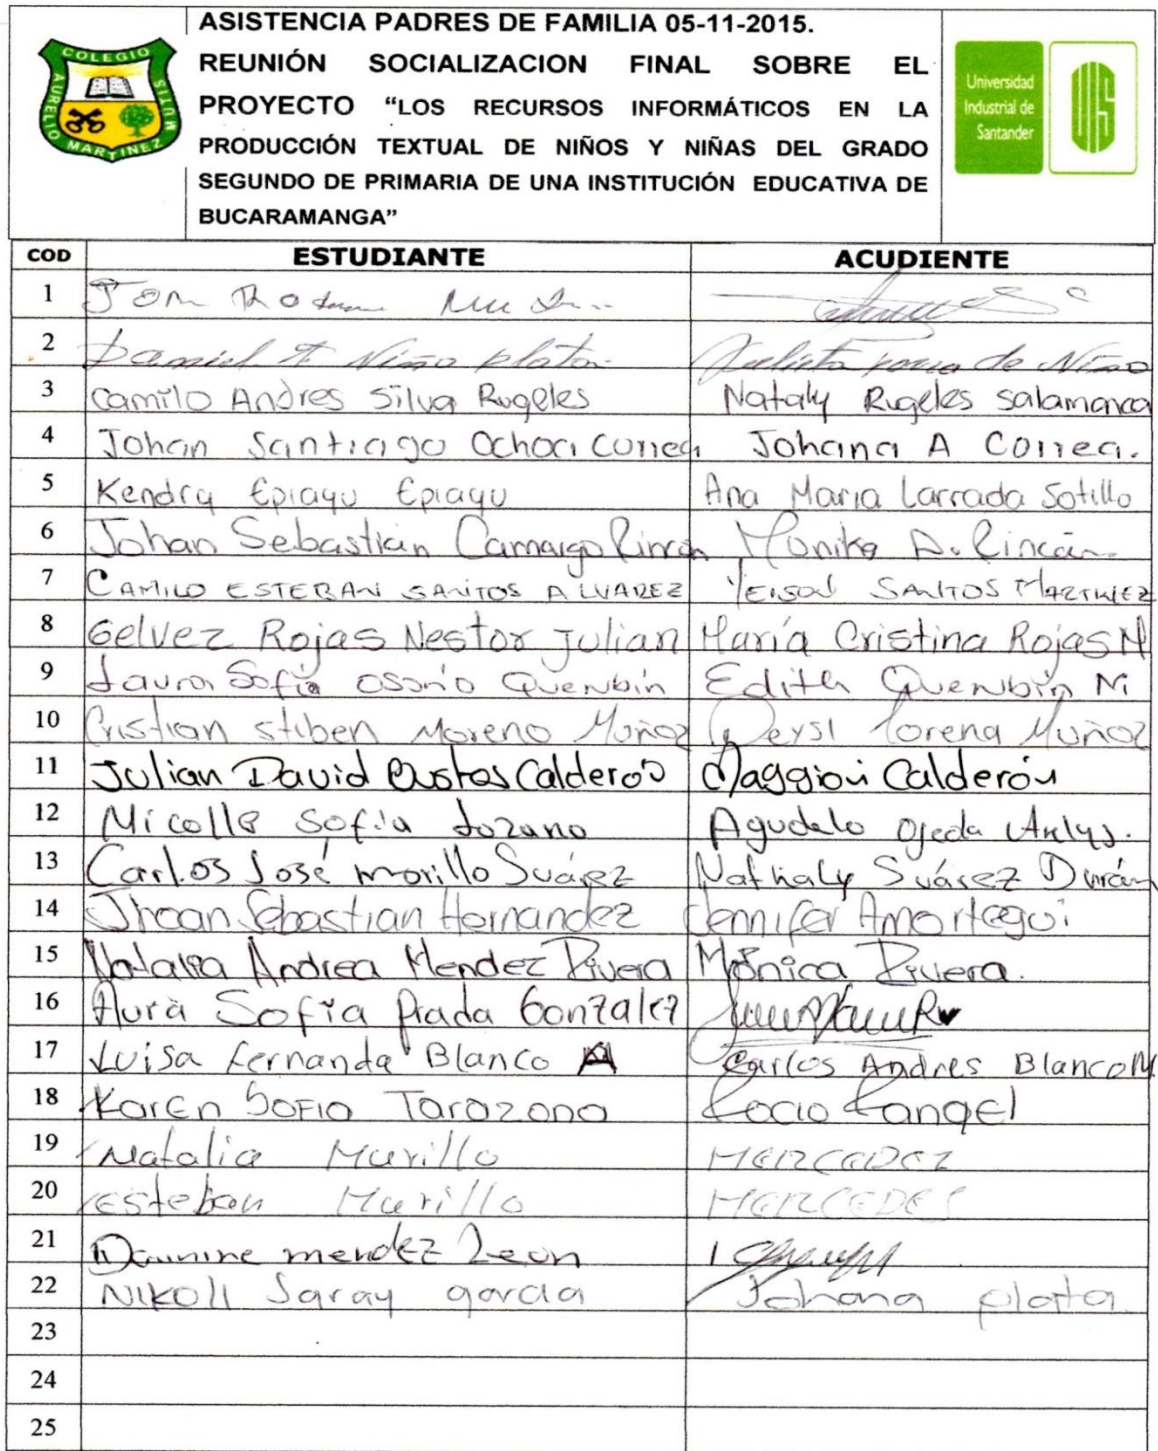 COLEGIO
AURELIO MARTINEZ MUTIS
ASISTENCIA PADRES DE FAMILIA 05-11-2015.
REUNIÓN SOCIALIZACION FINAL SOBRE EL
PROYECTO “LOS RECURSOS INFORMÁTICOS EN LA
PRODUCCIÓN TEXTUAL DE NIÑOS Y NIÑAS DEL GRADO
SEGUNDO DE PRIMARIA DE UNA INSTITUCIÓN EDUCATIVA DE
BUCARAMANGA”
Universidad
Industrial de
Santander
UIS
COD ESTUDIANTE ACUDIENTE
1
2 Daniel Niño plata de Niño
3 Camilo Andres Silva Rugeles Nataly Rugeles Salamanca
4 Johan Santiago Ochoa Correa Johana A Correa.
5 Kendry Epiayu Epiayu Ana Maria Larrada Sotillo
6 Johan Sebastian Camargo Rincón Monika A. Rincón
7 CAMILO ESTEBAN SANTOS ALVAREZ YEISON SANTOS MARTINEZ
8 Gelvez Rojas Nestor Julian María Cristina Rojas M
9 Laura Sofía Osorio Quembin Edith Quembin M
10 Cristian stiben Moreno Muñoz Deysi Lorena Muñoz
11 Julian David Bustos Calderón Maggion Calderón
12 Micolle Sofia Lozano Agudelo Ojeda
13 Carlos José morillo Suárez Nathaly Suárez Durán
14 Jhoan Sebastian Hernandez Jennifer Amortegui
15 Natalia Andrea Mendez Rivera Mónica Rivera.
16 Aura Sofia Prada Gonzalez
17 Luisa fernanda Blanco A Carlos Andres Blanco M.
18 Karen Sofia Tarazona Rocio Rangel
19 Natalia Murillo MERCEDEZ
20 Esteban Murillo MERCEDES
21 mendez Leon
22 Nikoll Saray garcia Johana plata.
23
24
25